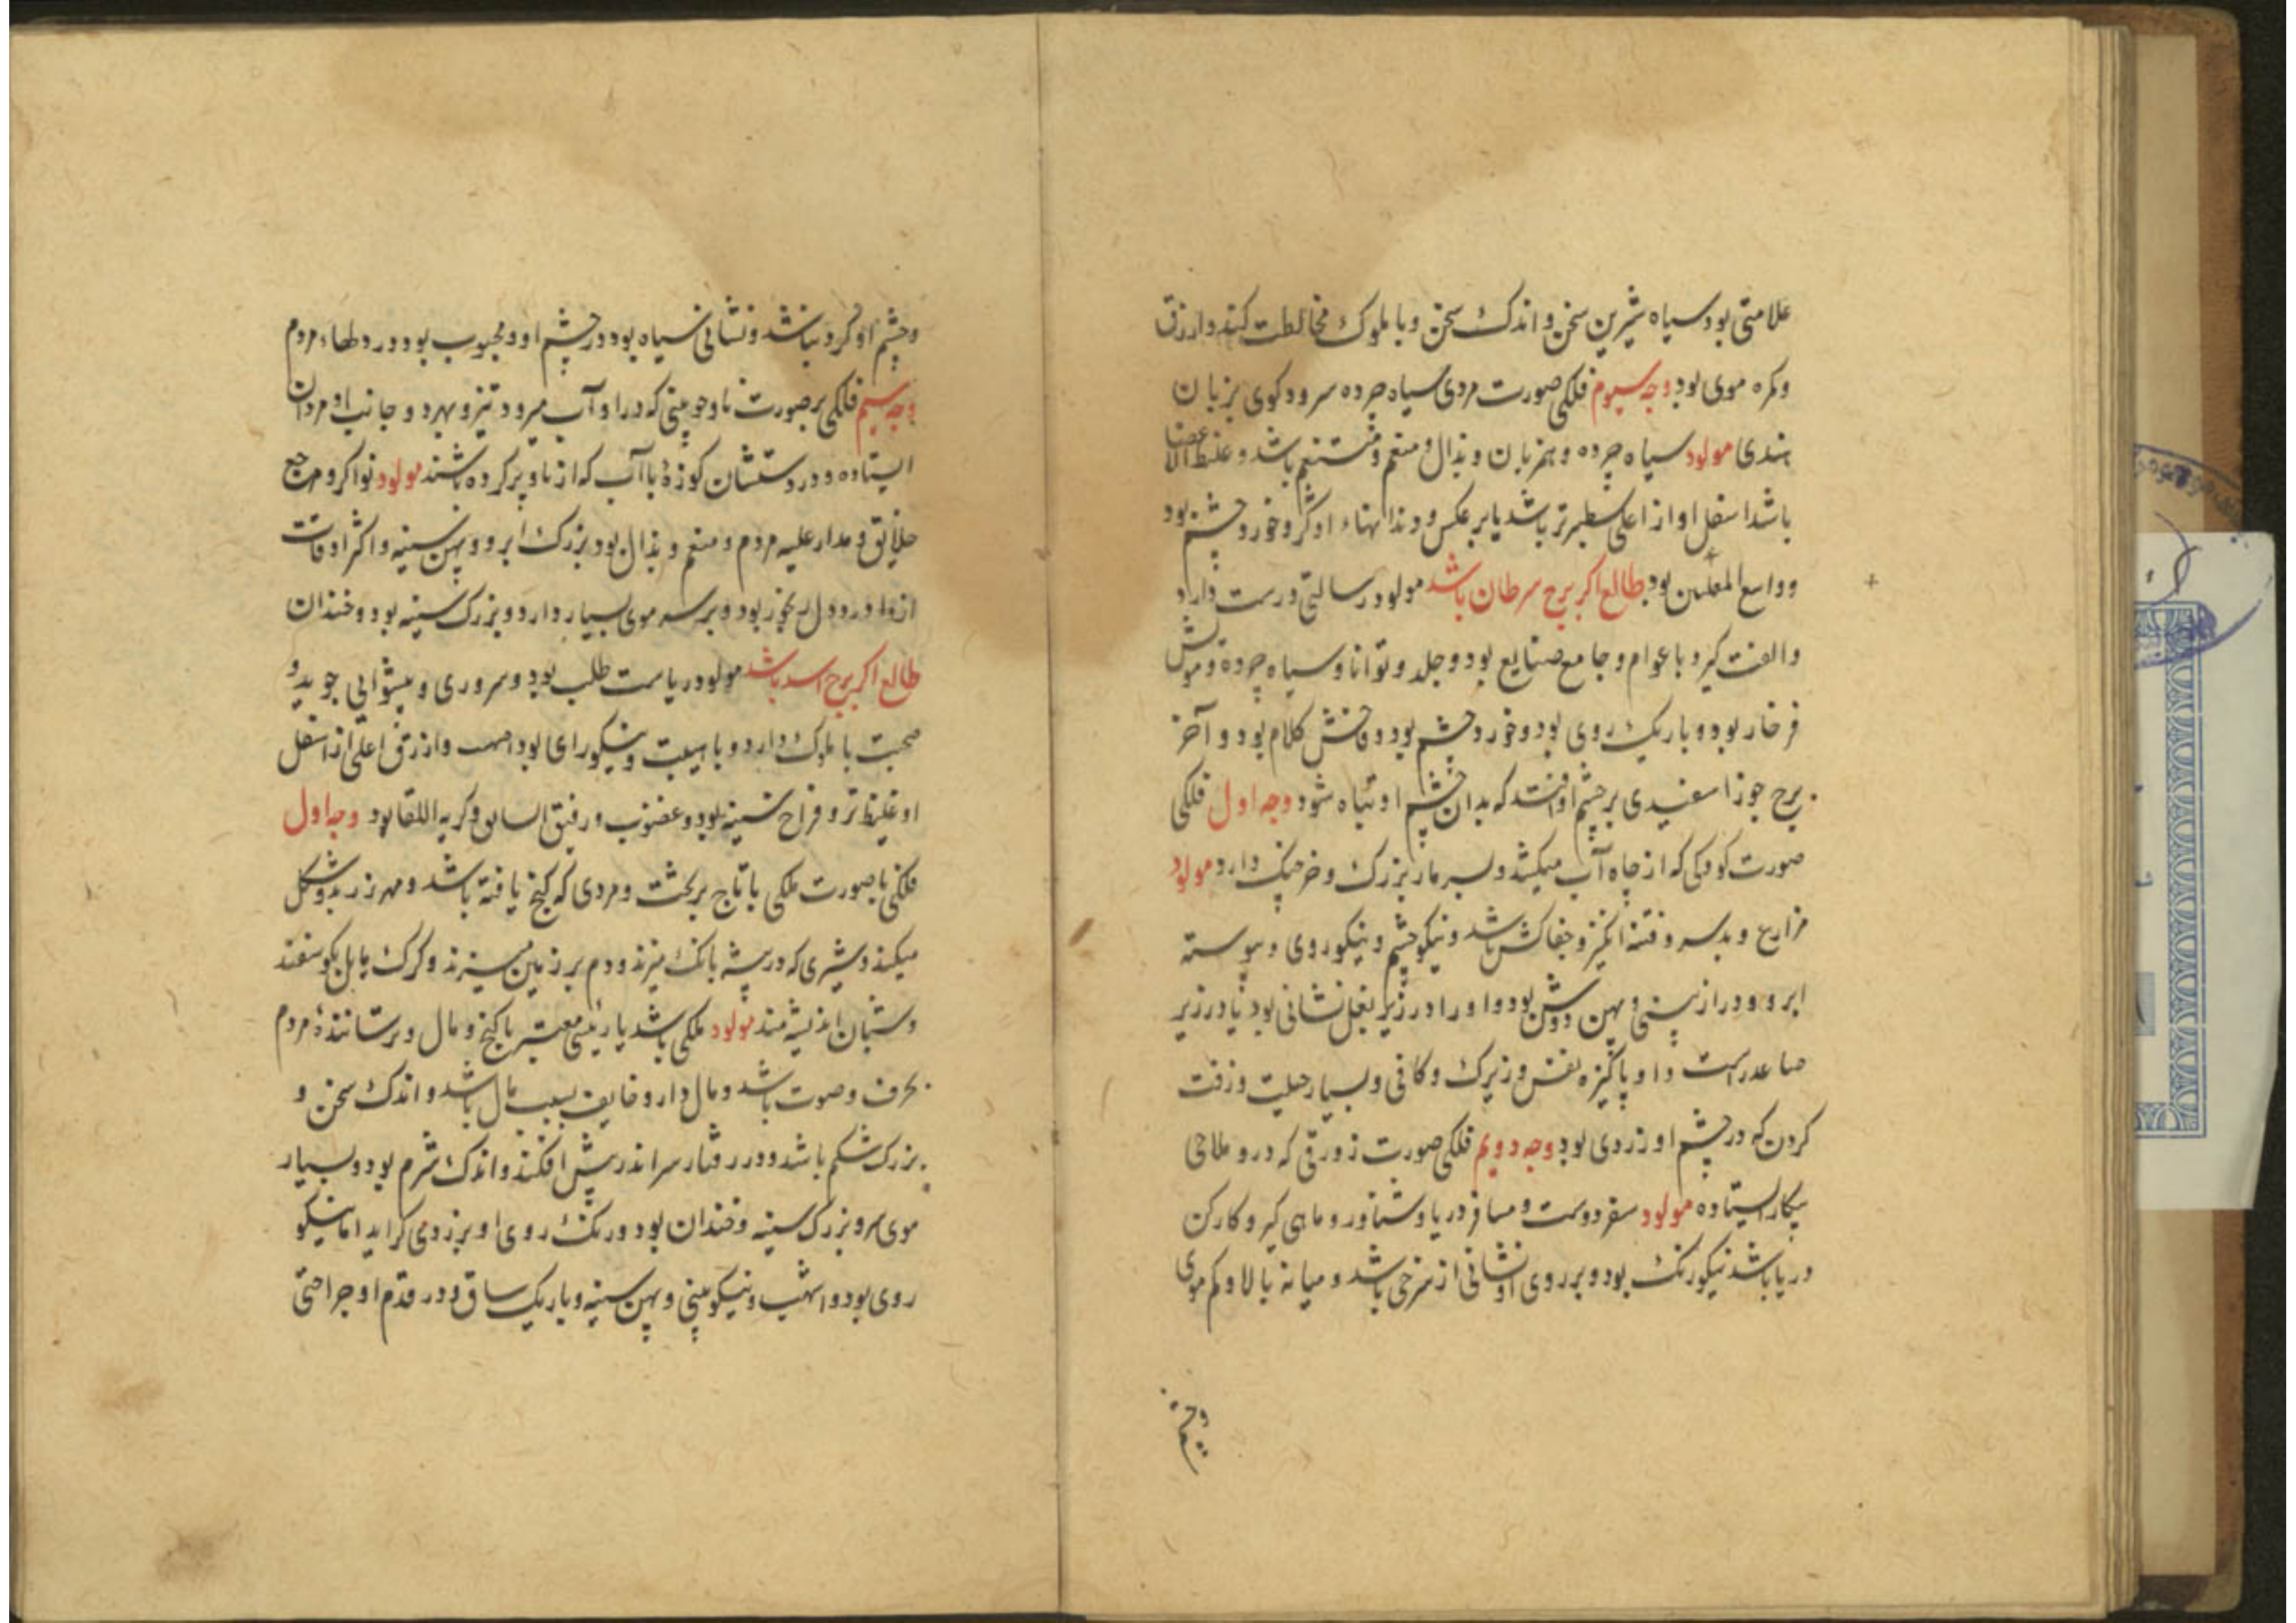 علامتی بود سیاه شیرین سخن و اندک سخن و با ملوک مخالطت کند و ازرق
و کره موی بود وجه سیوم فلکی صورت مردی سیاه چرده سرود کوی بزبان
هندی مولود سیاه چرده و هنر بان و بذال و منعم و متنعم باشد و غلیظ الاعضا
باشد اسفل او از اعلی سطبرتر باشد یا بر عکس و دندانهاء او کر و خورد چشم بود
و واسع بود طالع اکر برج سرطان باشد مولود رسالتی درست دارد
و الفت کیرد با عوام و جامع صنایع بود و جلد و توانا و سیاه چرده و موش
فرخار بود و باریک روی بود و خورد چشم بود و فحش کلام بود و آخر
برج جوزا سفیدی بر چشم او افتد که بدان چشم او تباه شود وجه اول فلکی
صورت کودکی که از چاه آب میکشد و سر مار بزرک و خرچنک دارد مولود
مزارع و و فتنه انکیز و جفاکش باشد و نیکو چشم و نیکو روی و پیوسته
ابرو و دراز بینی و پهن دوش بود و او را در زیر بغل نشانی بود یا در زیر
ساعد راست و او پاکیزه نفس و زیرک و کافی و بسیار حیلت و زفت
کردن که در چشم او زردی بود وجه دویم فلکی صورت زورقی که درو ملاحی
بیکار ایستاده مولود سفر دوست و مسافر دریا و شناور و ماهی کیر و کارکن
دریا باشد نیکو رنک بود و بر روی او نشانی از سرخی باشد و میانه بالا و کم موی
و چشم
و چشم او کرد باشد و نشانی سیاه بود در چشم او و محبوب بود در دلهاء مردم
وجه سیم فلکی بر صورت ناو چوبینی که در او آب میرود تیز و بهر دو جانب او مردان
ایستاده و در دستشان کوزهٔ با آب که از ناو پر کرده باشند مولود توانکر و مرجع
خلایق و مدار علیه مردم و منعم و بذال بود بزرک ابرو و پهن سینه و اکثر اوقات
از درد دل بود و بر سر موی بسیار دارد و بزرک سینه بود و خندان
طالع اکر برج اسد باشد مولود ریاست طلب بود و سروری و پیشوائی جوید و
صحبت با ملوک دارد و با هیبت و نیکو رای بود اصهب و ازرق اعلی از اسفل
او غلیظ تر و فراخ سینه بود و غضوب و رقیق الساق و کریه اللقا بود وجه اول
فلکی با صورت ملکی با تاج بر تخت و مردی که کنج یافته باشد و مهر زر بدو شکل
میکند و شیری که در بیشه بانک میزند و دم بر زمین میزند و کرک مایل بکوسفند
و شبان اندیشه مند مولود ملکی باشد یا رئیسی معتبر با کنج و مال و ترسانندهٔ مردم
بحرف و صوت باشد و مال دار و خایف بسبب مال باشد و اندک سخن و
بزرک شکم باشد و در رفتار سر اندر پیش افکند و اندک شرم بود و بسیار
موی سر و بزرک سینه و خندان بود و رنک روی او بزردی کراید اما نیکو
روی بود و اشهب و نیکو بینی و پهن سینه و باریک ساق و در قدم او جراحتی